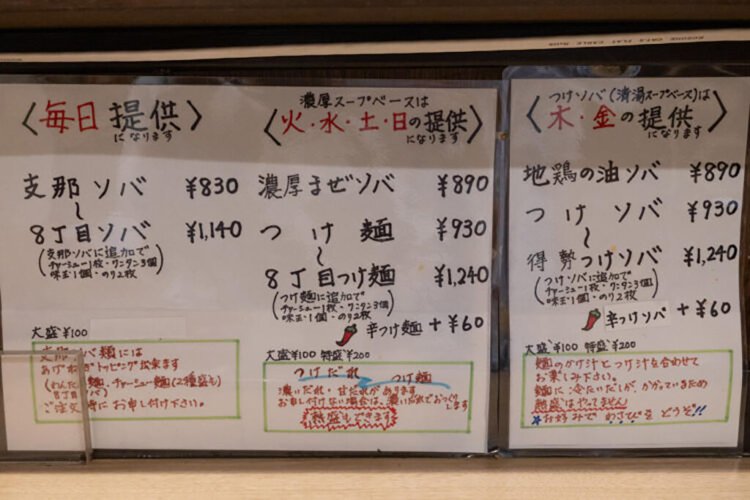 〈毎日提供〉
になります
支那ソバ ¥830
〜
8丁目ソバ ¥1,140
(支那ソバに追加で
チャーシュー1枚・ワンタン3個
味玉1個・のり2枚)
大盛¥100
支那ソバ麺には
あげねぎトッピング出来ます
(わんたん麺・チャーシュー麺(2種盛も)
8丁目ソバ)
ご注文時にお申し付け下さい。
濃厚スープベースは
〈火・水・土・日の提供〉
になります
濃厚まぜソバ ¥890
つけ麺 ¥930
〜
8丁目つけ麺 ¥1,240
(つけ麺に追加で
チャーシュー1枚・ワンタン3個
味玉1個・のり2枚)
辛つけ麺 +¥60
大盛¥100 特盛¥200
つけだれ つけ麺
濃いだれ・甘だれがあります
お申し付けない場合は、濃いだれでおつくり
します
熱盛もできます
つけソバ(清湯スープベース)は
〈木・金の提供〉
になります
地鶏の油ソバ ¥890
つけソバ ¥930
〜
得勢つけソバ ¥1,240
(つけソバに追加で
チャーシュー1枚・ワンタン3個
味玉1個・のり2枚)
辛つけソバ +¥60
大盛¥100 特盛¥200
麺のかけ汁とつけ汁を合わせて
お楽しみ下さい。
麺に冷たいだしが、かかっているため
熱盛はやってません
★お好みでわさびをどうぞ!!